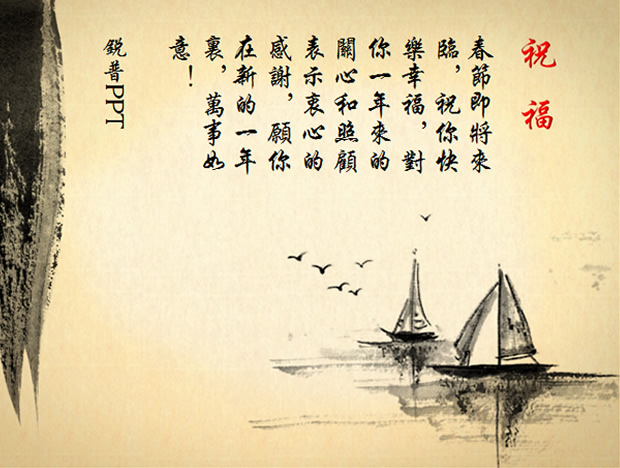 祝福
春節即將來
臨，祝你快
樂幸福，對
你一年來的
關心和照顧
表示衷心的
感謝，願你
在新的一年
裏，萬事如
意！
銳普PPT